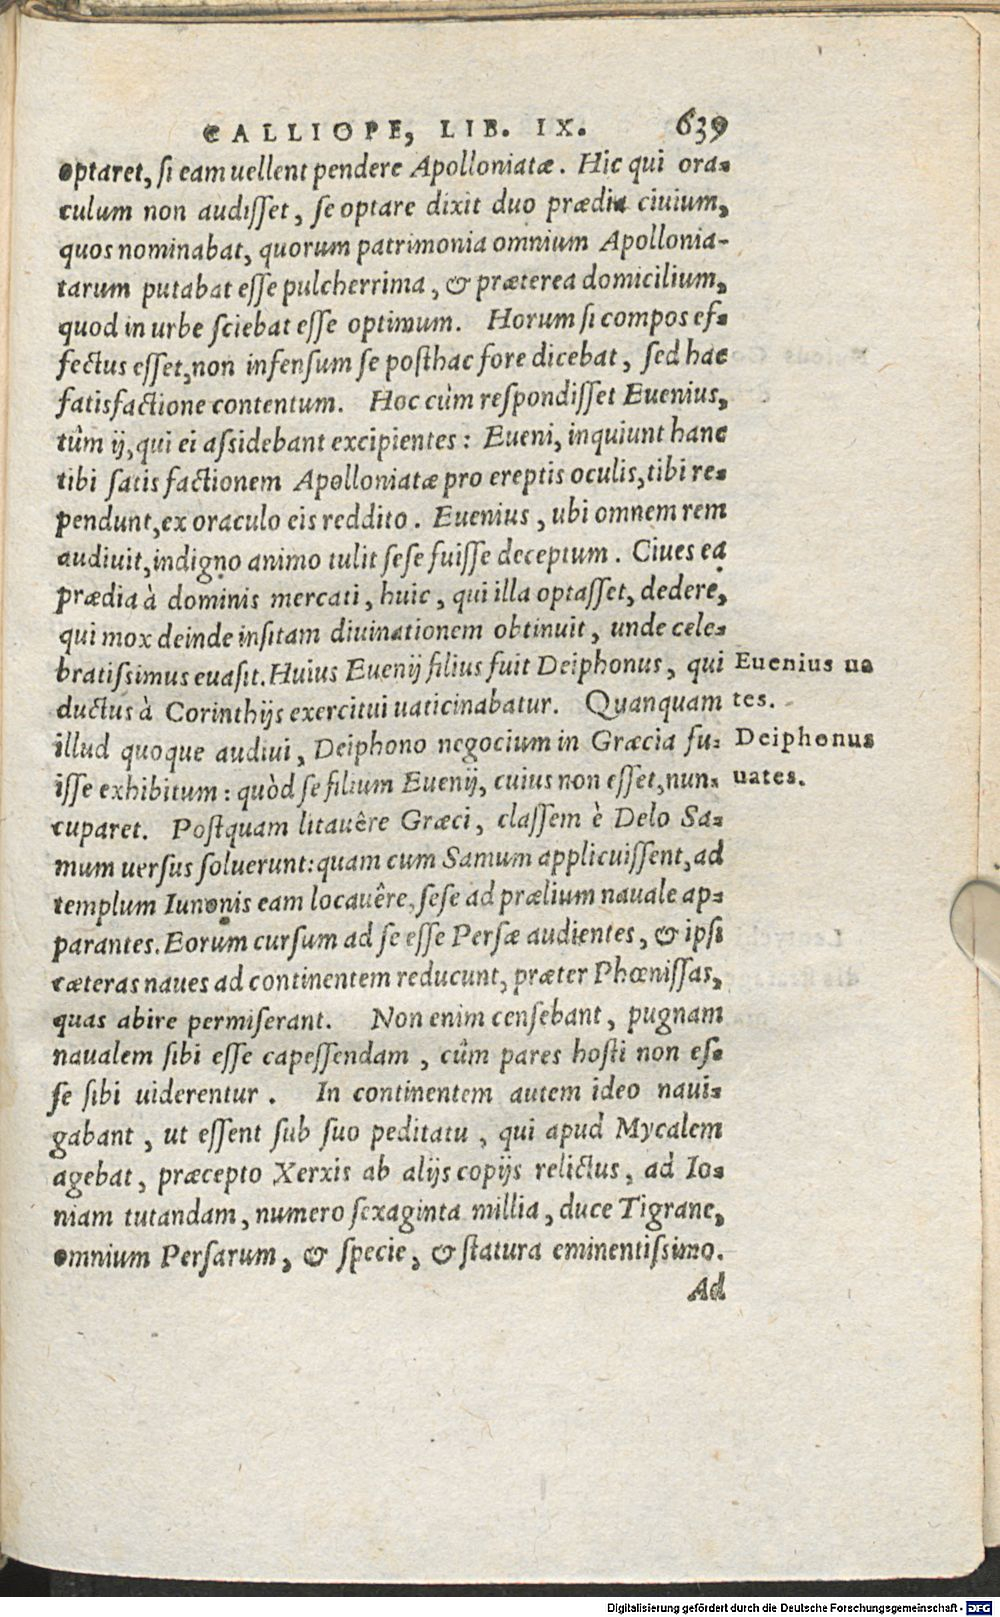 CALLIOPE, LIB. IX. 639
optaret, si eam uellent pendere Apolloniatæ. Hic qui ora-
culum non audisset, se optare dixit duo prædia ciuium,
quos nominabat, quorum patrimonia omnium Apollonia-
tarum putabat esse pulcherrima, & præterea domicilium,
quod in urbe sciebat esse optimum. Horum si compos ef-
fectus esset, non infensum se posthac fore dicebat, sed hac
satisfactione contentum. Hoc cùm respondisset Euenius,
tûm ij, qui ei assidebant excipientes: Eueni, inquiunt hanc
tibi satis factionem Apolloniatæ pro ereptis oculis, tibi re-
pendunt, ex oraculo eis reddito. Euenius, ubi omnem rem
audiuit, indigno animo tulit sese fuisse deceptum. Ciues ea
prædia à dominis mercati, huic, qui illa optasset, dedere,
qui mox deinde insitam diuinationem obtinuit, unde cele-
bratissimus euasit. Huius Euenij filius fuit Deiphonus, qui
Euenius ua
ductus à Corinthijs exercitui uaticinabatur. Quanquam
tes.
illud quoque audiui, Deiphono negocium in Græcia fu-
Deiphonus
isse exhibitum: quòd se filium Euenij, cuius non esset, nun-
uates.
cuparet. Postquam litauêre Græci, classem è Delo Sa-
mum uersus soluerunt: quam cum Samum applicuissent, ad
templum Iunonis eam locauêre, sese ad prælium nauale ap-
parantes. Eorum cursum ad se esse Persæ audientes, & ipsi
cæteras naues ad continentem reducunt, præter Phœnissas,
quas abire permiserant. Non enim censebant, pugnam
naualem sibi esse capessendam, cûm pares hosti non es-
se sibi uiderentur. In continentem autem ideo naui-
gabant, ut essent sub suo peditatu, qui apud Mycalem
agebat, præcepto Xerxis ab alijs copijs relictus, ad Io-
niam tutandam, numero sexaginta millia, duce Tigrane,
omnium Persarum, & specie, & statura eminentissimo.
Ad
Digitalisierung gefördert durch die Deutsche Forschungsgemeinschaft - DFG